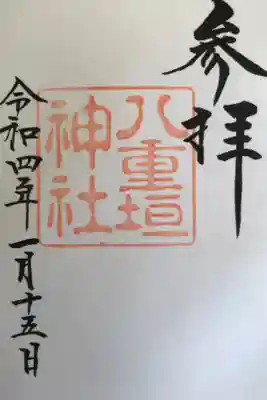 参拝
八重垣
神社
令和四年一月十五日